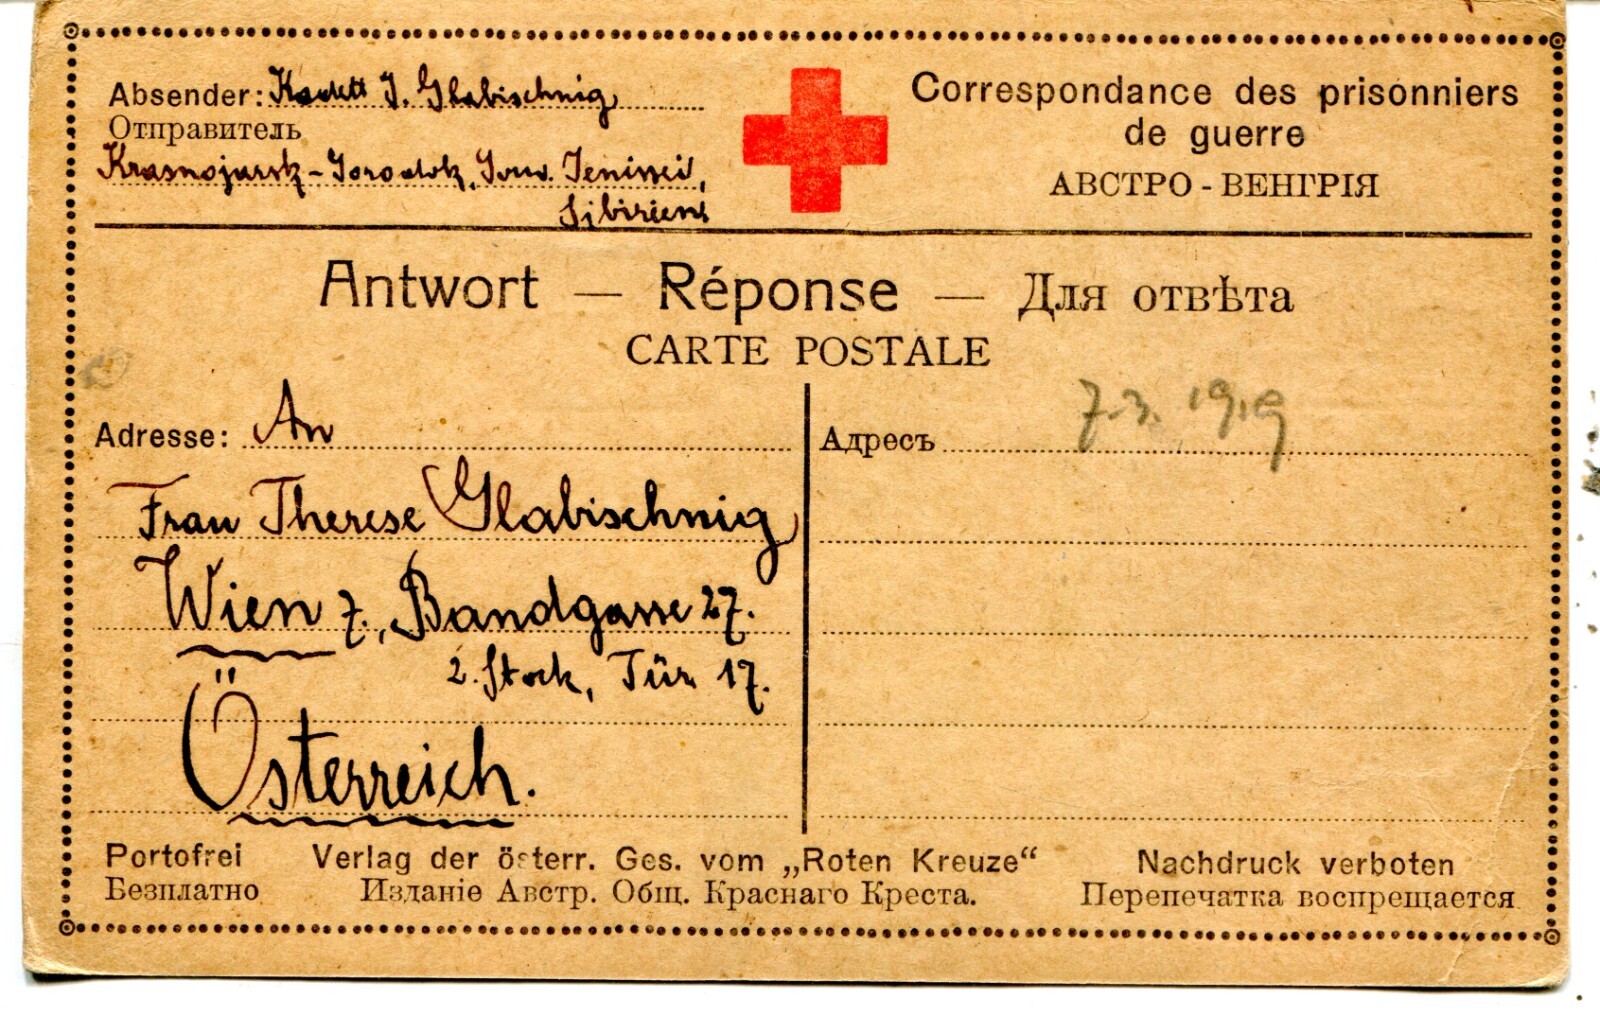 Absender: Kadett J. Glabischnig,
Отправитель
Krasnojarsk-Gorodok, Gouv. Jenissei,
Sibirien
Correspondance des prisonniers
de guerre
АВСТРО - ВЕНГРІЯ
Antwort — Réponse — Для отвѣта
CARTE POSTALE
Adresse: An
Frau Therese Glabischnig
Wien 7., Bandgasse 27.
2. Stock, Tür 17.
Österreich.
Адресъ 7.3. 1919
Portofrei Verlag der österr. Ges. vom „Roten Kreuze“ Nachdruck verboten
Безплатно Изданіе Австр. Общ. Краснаго Креста. Перепечатка воспрещается